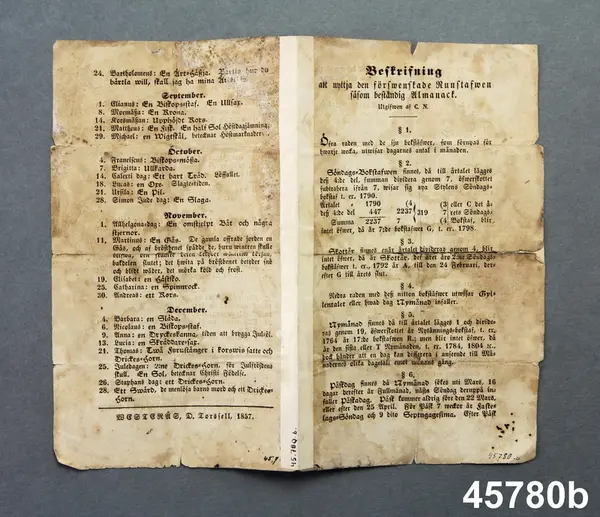 24. Bartholomeus: En Art-Häsja. Bärtla hur du
bärtla will, skall jag ha mina
September.
1. Elianus: En Biskopsstaf. En Ullsax.
8. Mormässa: En Krona.
14. Korsmässan: Upphöjdt Kors.
21. Mattheus: En Fisk. En half Sol Höstdagjämning.
29. Michael: en Wigtskål, betecknar Höstmarknader.
October.
4. Franciscus: Biskops-mössa.
7. Brigitta: Ullkarda.
14. Galeri dag: Ett bart Träd. Löffallet.
18. Lucas: en Oxe. Slagtetiden.
21. Ursila: En Pil.
28. Simon Jude dag: En Slaga.
November.
1. Allhelgona-dag: En omstjelpt Båt och några
stjernor.
11. Martinus: En Gås. De gamla offrade jorden en
Gås, och af bröstbenet spådde de, huru wintern skulle
blifwa, den främre delen
bakdelen slutet; det hwita på bröstbenet betyder snö
och blidt wäder, det mörka köld och frost.
19. Elisabet: en Hästsko.
25. Catharina: en Spinnrock.
30. Andreas: ett Kors.
December.
4. Barbara: en Släda.
6. Nicolaus: en Biskopsstaf.
9. Anna: en Dryckeskanna, tiden att brygga Julöl.
13. Lucia: en Skräddare-sax.
21. Thomas: Twå Furustänger i korswis satte och
Drickes-Horn.
25. Juledagen: Trne Drickes-Horn, för Julfröjdens
skull. En Sol, betecknar Christi Födelse.
26. Stephans dag: ett Drickes-Horn.
28. Ett Swärd, de menlösa barns mord och ett Drickes-
Horn.
WESTERÅS, D. Torssell, 1857.
45.7
45.780.b.
Beskrifning
att nyttja den förswenskade Runstafwen
såsom beständig Almanack.
Utgifwen af C. N.
§ 1.
Öfra raden med de sju bokstäfwer, som förnyas för
hwarje wecka, utwisar dagarnes antal i månaden.
§ 2.
Söndags-Bokstafwen finnes, då till årtalet lägges
deß 4:de del, summan divideras genom 7, öfwerskottet
subtrahera ifrån 7, wisar sig nya Stylens Söndags-
bokstaf t. ex. 1790.
Årtalet 1790 (4 (3/ eller C det å-
deß 4:de del 447 2237 319 7 rets Söndags-
Summa 2237 7 (4 Bokstaf, är
intet öfwer, då är 7:de bokstafwen G, t. ex. 1798.
§ 3.
Skottår, finnes när årtalet divideras genom 4, blir
intet öfwer, då är Skottår, det året äro 2:ne Söndags-
bokstäfwer t. ex. 1792 är A, till den 24 Februari, der-
efter G till årets slut.
§ 4.
Nedra raden med deß nitton bokstäfwer utwisar Gyl-
lentalet eller hwad dag Nymånad infaller.
§ 5.
Nymånad finnes då till årtalet lägges 1 och divide-
ras genom 19, öfwerskottet är Nytännings-bokstaf, t. ex.
1764 är 17:de bokstafwen R.; men blir intet öfwer, då
är den sista eller T Nymånaden, t. ex. 1784, 1804 ic.,
dock händer att en dag kan differera i anseende till Må-
nadernes olika dagetal, emot månens gång.
§ 6.
Påskdag finnes då Nymånad sökes uti Mars, 16
dagar derefter är fullmånad, nästa Söndag deruppå in-
faller Påskadag. Påsk kommer aldrig före den 22 Mars,
eller efter den 25 April. För Påsk 7 weckor är Fastlags-
lags-Söndag och 9 dito Septuagesima. Efter Påsk
45780
45780b